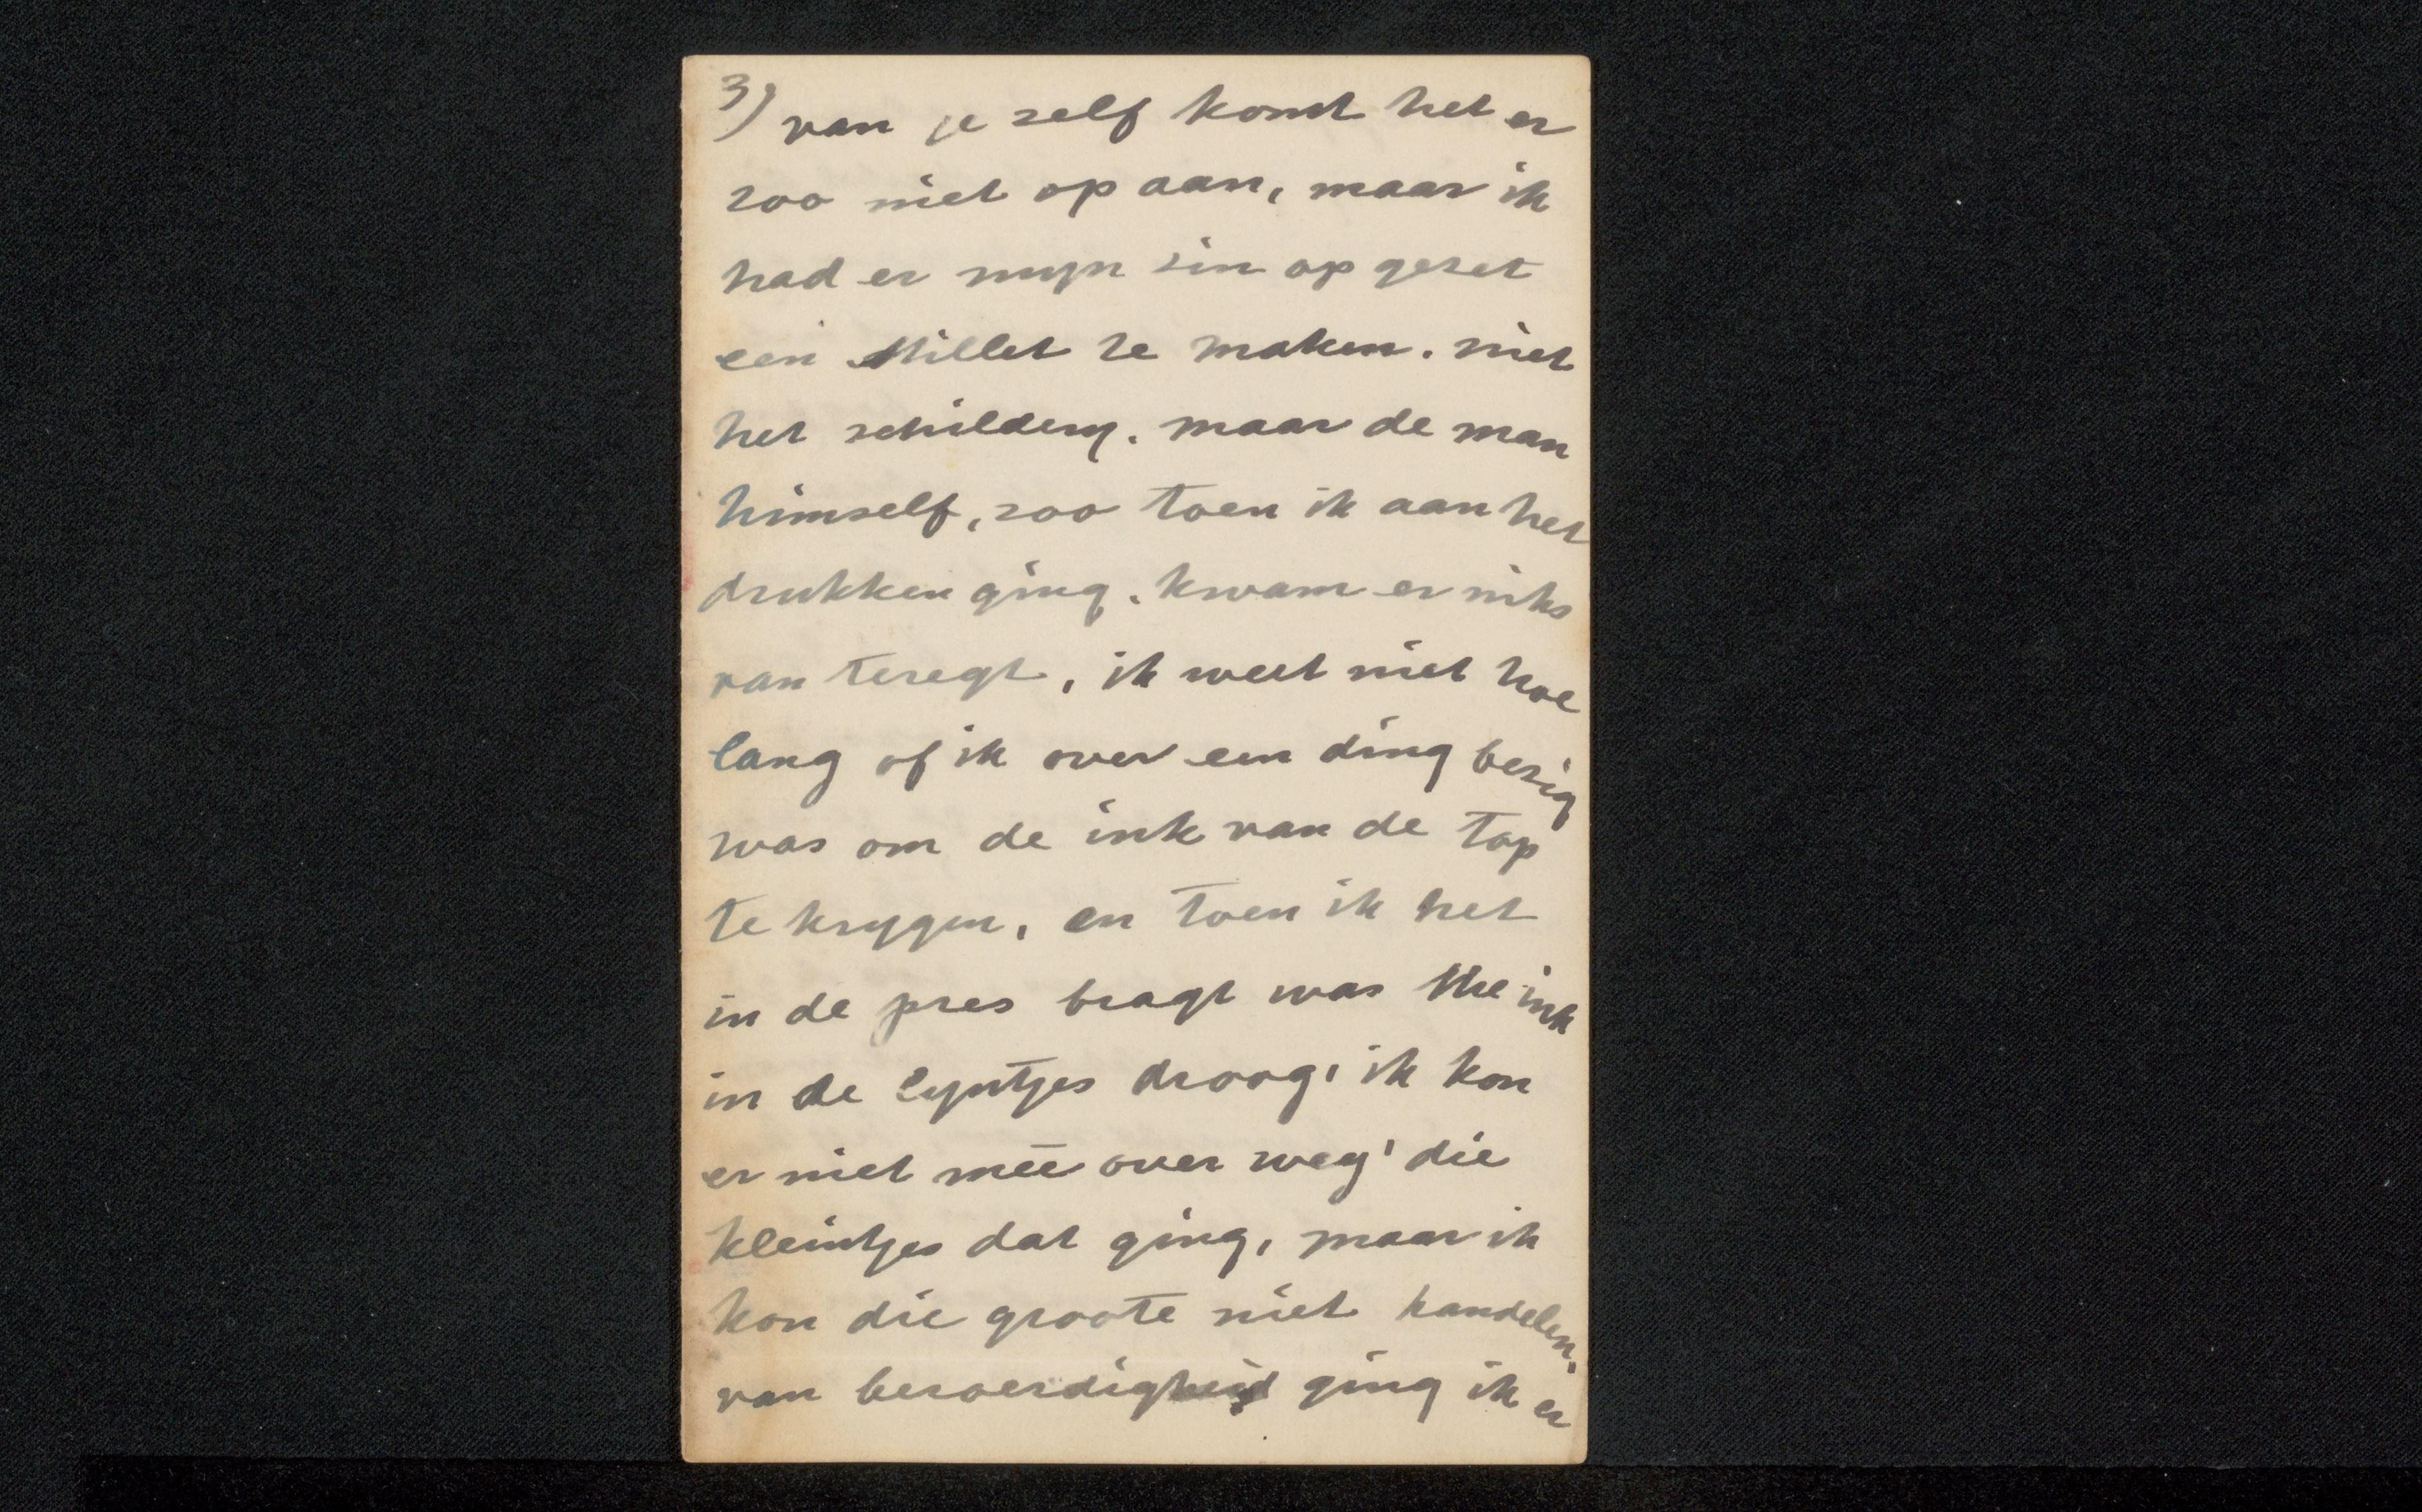 3) van je zelf komt het er
zoo niet op aan, maar ik
had er myn zin op gezet
een Millet te maken. niet
het schildery. maar de man
himself, zoo toen ik aan het
drukken ging. kwam er niks
van teregt, ik weet niet hoe
lang of ik over een ding bezig
was om de ink van de top
te krygen, en toen ik het
in de pres bragt was the ink
in de lyntjes droog, ik kon
er niet meē over weg, die
kleintjes dat ging, maar ik
kon die groote niet handelen.
van beroerdigheid ging ik er